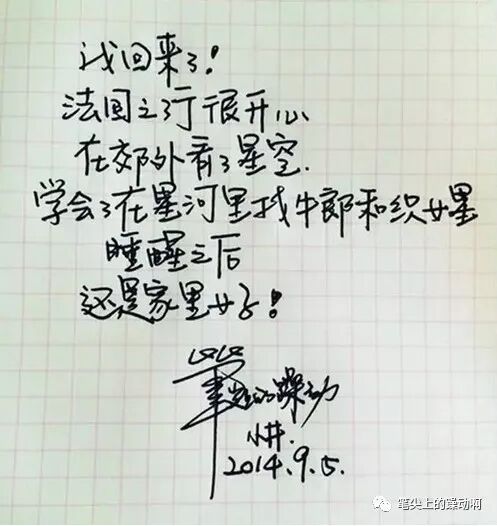 我回来了！
法国之行很开心
在郊外看了星空.
学会了在星河里找牛郎和织女星
睡醒之后
还是家里好！
笔尖的躁动
小井.
2014.9.5.
笔尖上的躁动啊